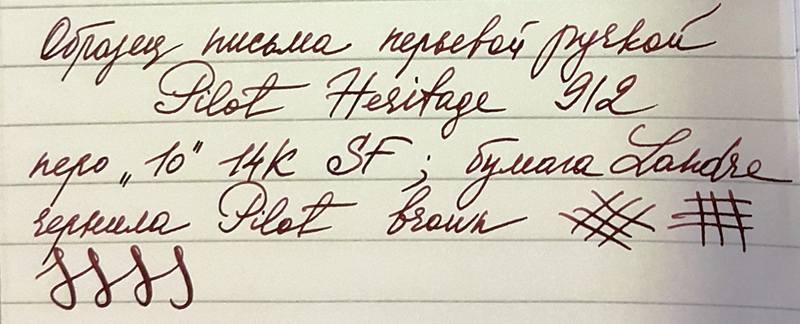 Образец письма перьевой ручкой
Pilot Heritage 912
перо „10" 14K SF; бумага Landre
чернила Pilot brown